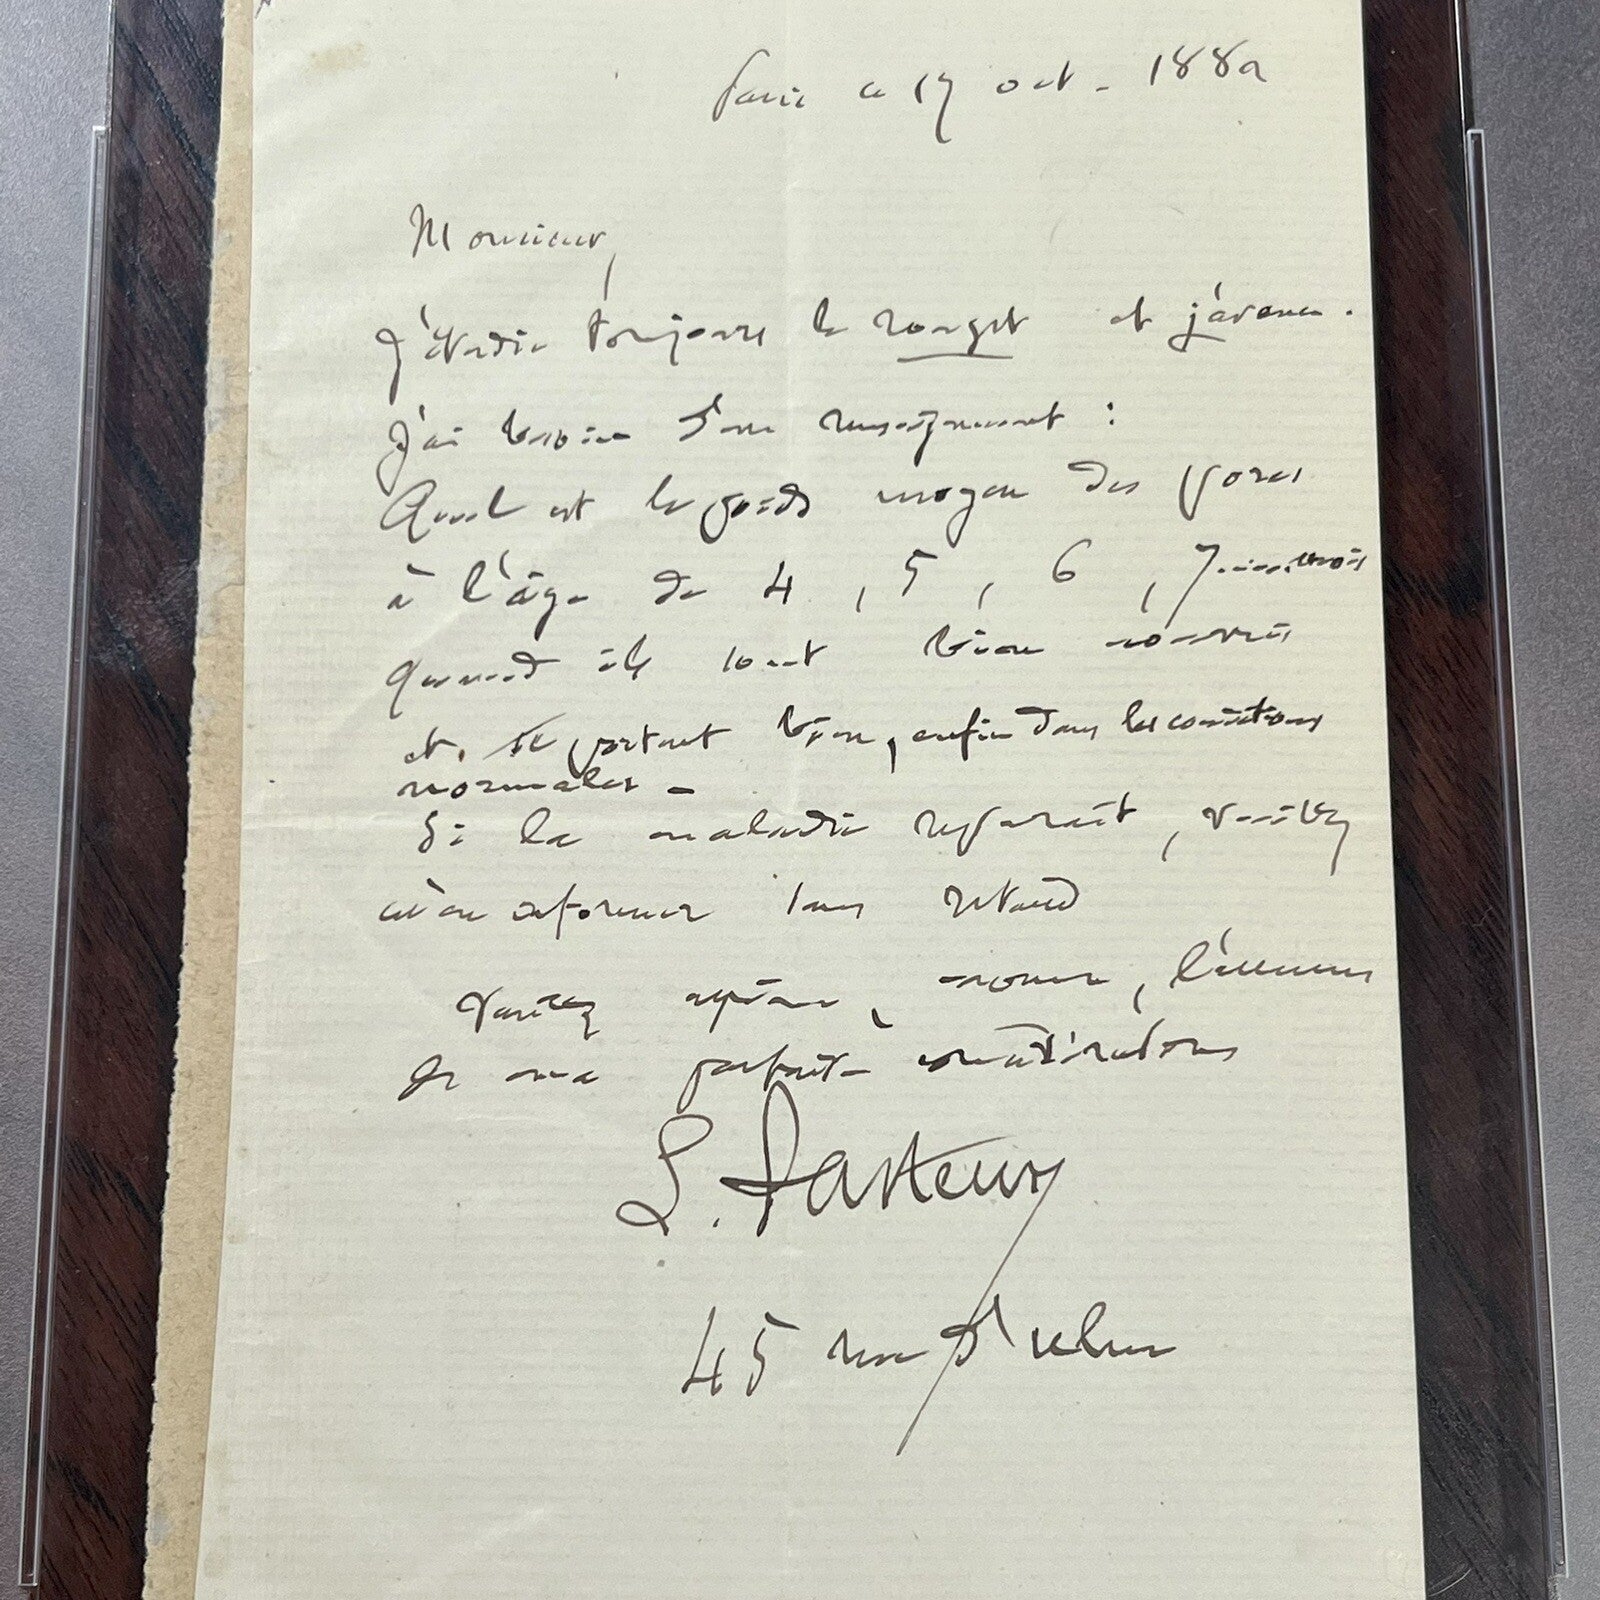 Paris ce 17 oct. 1882
Monsieur,
J'étudie toujours le rouget et j'avance.
J'ai besoin d'un renseignement :
Quel est le poids moyen des porcs
à l'âge de 4, 5, 6, 7 ..... mois
quand ils sont bien nourris
et se portent bien, enfin dans les conditions
normales –
Si la maladie reparait, veuillez
m'en informer sans retard
Veuillez agréer, l'assurance
de ma parfaite considération
L. Pasteur
45 rue d'Ulm